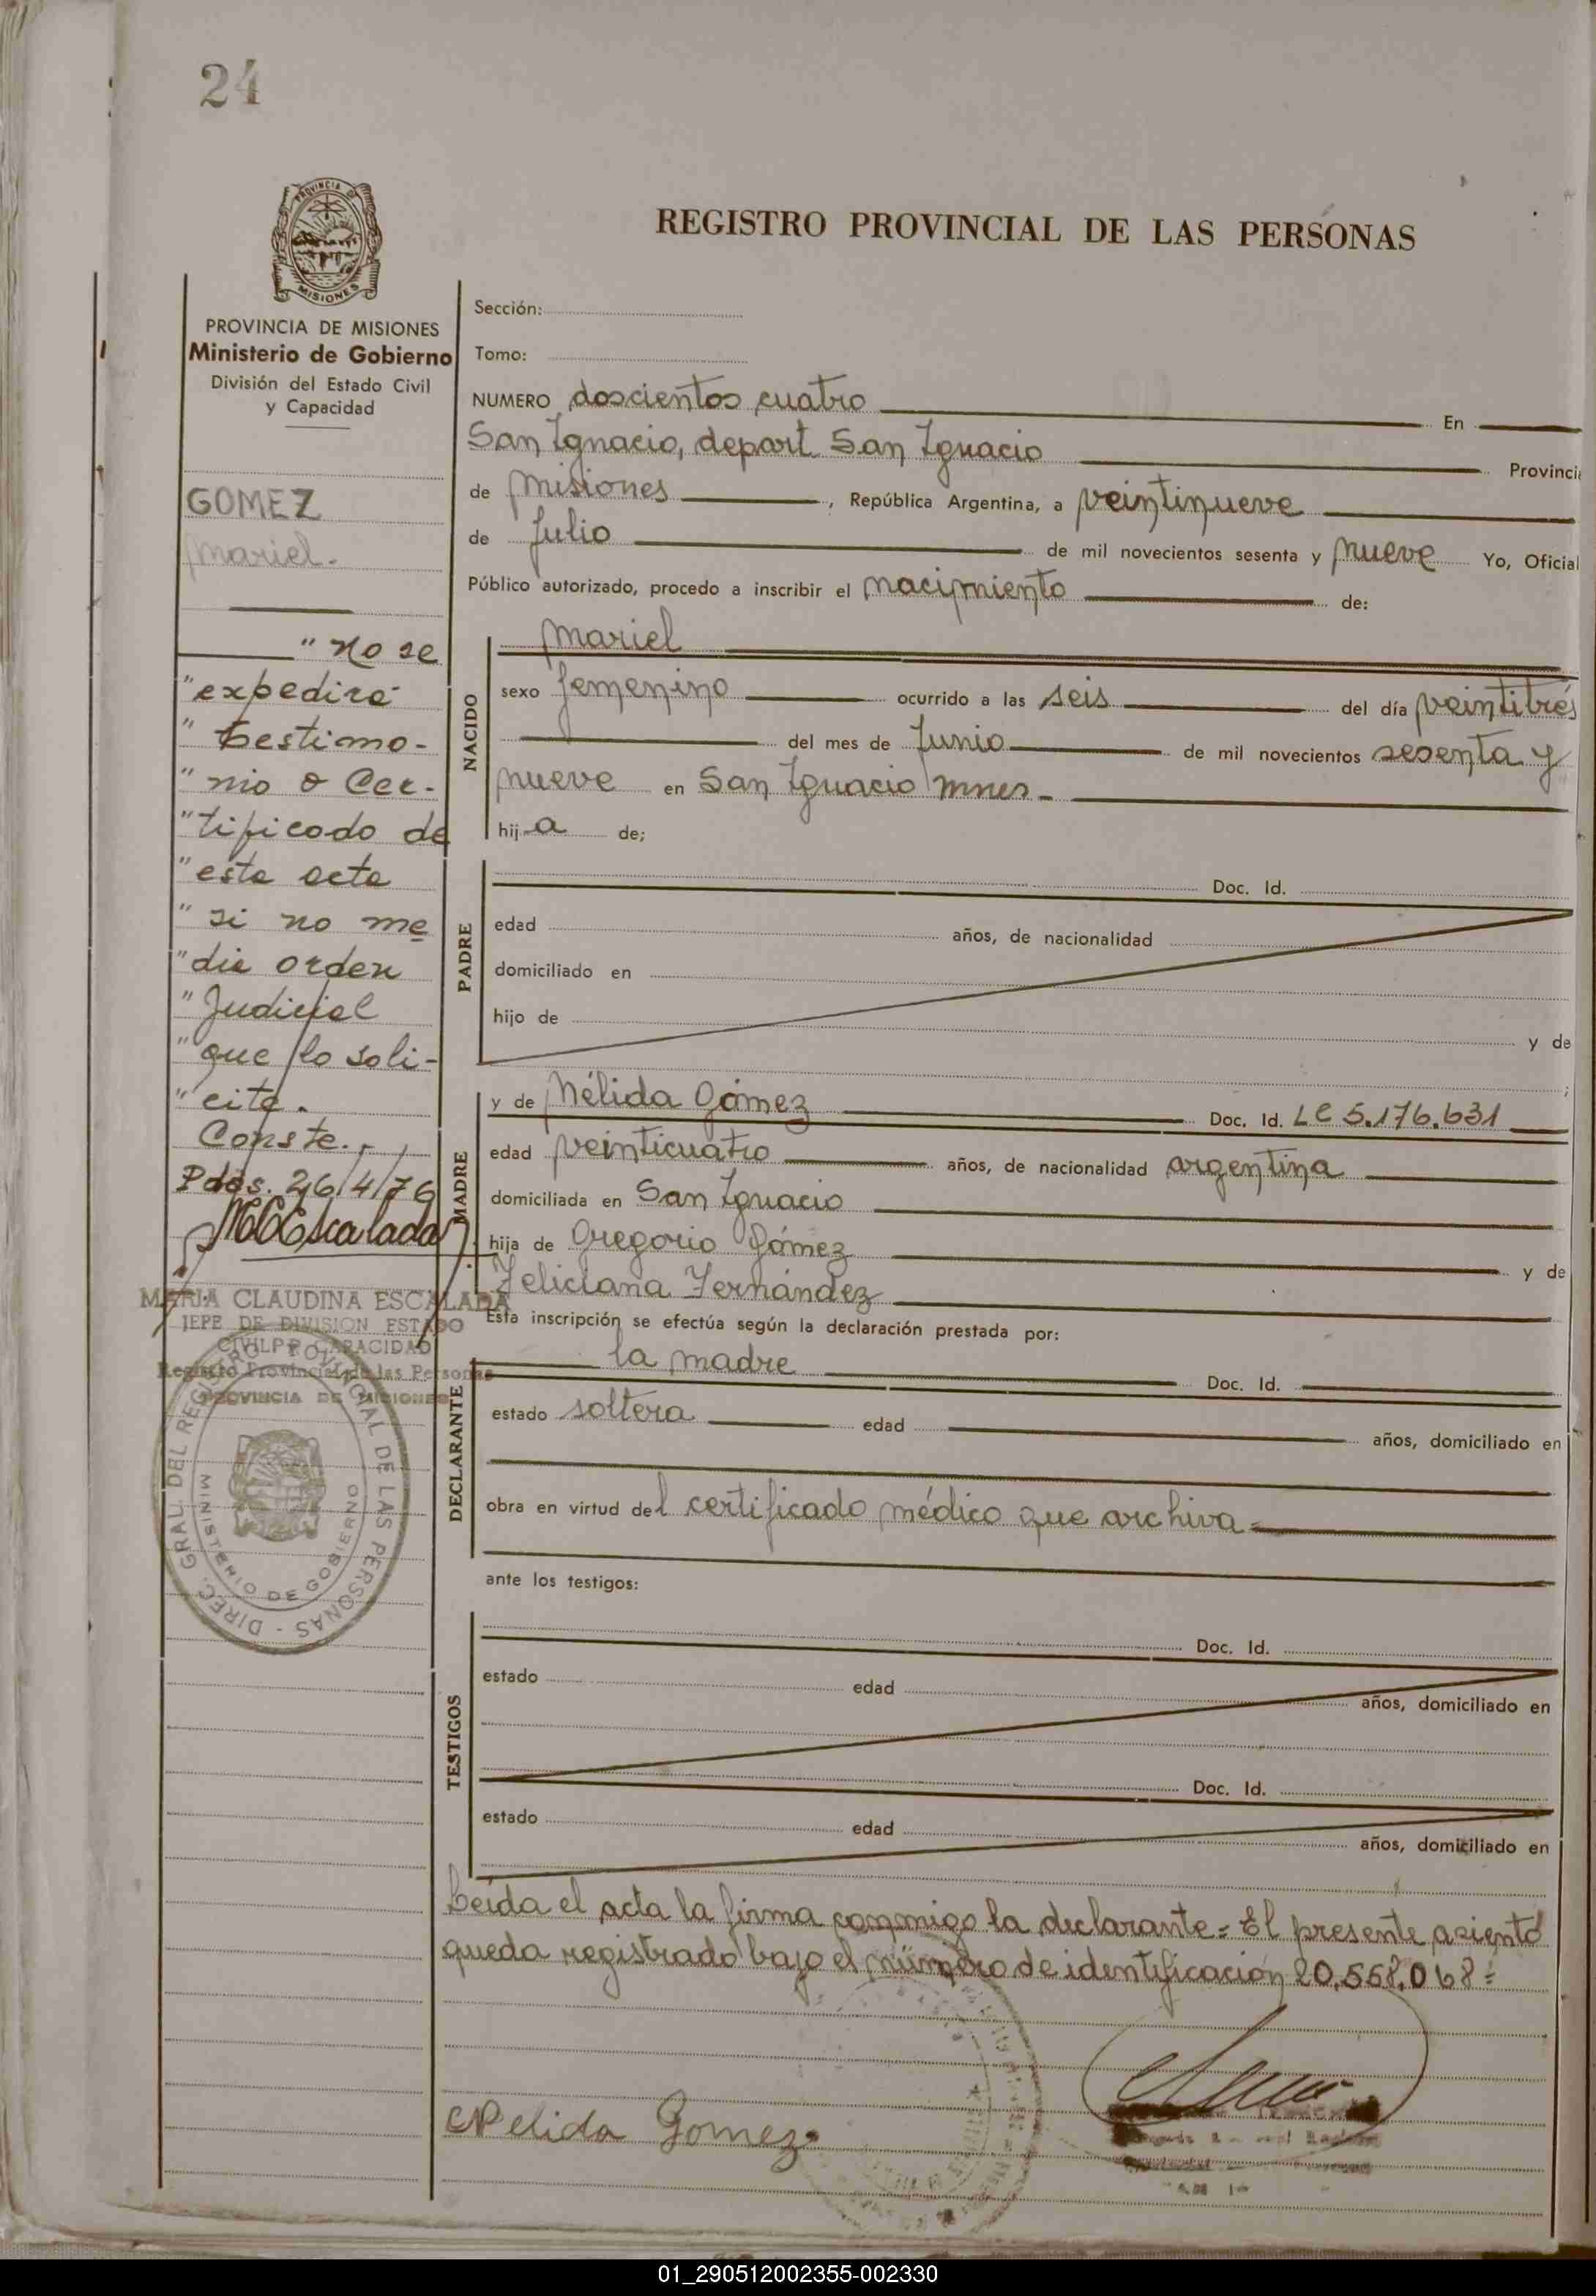 24
PROVINCIA DE
MISIONES
REGISTRO PROVINCIAL DE LAS PERSONAS
PROVINCIA DE MISIONES
Ministerio de Gobierno
División del Estado Civil
y Capacidad
GOMEZ
Mariel.
" No se
"expedirá
" Testimo-
" nio o Cer-
"tificado de
"esta acta
" si no me
"dia orden
"Judicial
"que lo soli-
"cite.
Conste.-
Pdas. 26/4/76
MCEscalada
MARIA CLAUDINA ESCALADA
JEFE DE DIVISION ESTADO
CIVIL Y CAPACIDAD
Registro Provincial de las Personas
PROVINCIA DE MISIONES
DIREC. GRAL. DEL REGISTRO PROVINCIAL DE LAS PERSONAS -
MINISTERIO DE GOBIERNO
Sección:
Tomo:
NUMERO doscientos cuatro En
San Ignacio, depart San Ignacio Provinci
de Misiones , República Argentina, a veintinueve
de Julio de mil novecientos sesenta y nueve Yo, Oficial
Público autorizado, procedo a inscribir el nacimiento de:
NACIDO
Mariel
sexo femenino ocurrido a las seis del día veintitrés
del mes de Junio de mil novecientos sesenta y
nueve en San Ignacio Mnes-
hij a de;
PADRE
Doc. Id.
edad años, de nacionalidad
domiciliado en
hijo de y de
;
MADRE
y de Nélida Gómez Doc. Id. LC 5.176.631
edad veinticuatro años, de nacionalidad argentina
domiciliada en San Ignacio
hija de Gregorio Gómez y de
Feliciana Fernández
Esta inscripción se efectúa según la declaración prestada por:
DECLARANTE
la madre Doc. Id.
estado soltera edad años, domiciliado en
obra en virtud del certificado médico que archiva=
ante los testigos:
TESTIGOS
Doc. Id.
estado edad años, domiciliado en
Doc. Id.
estado edad años, domiciliado en
Leída el acta la firma conmigo la declarante= El presente asiento
queda registrado bajo el número de identificación 20.558.068=
Nelida Gomez
01_290512002355-002330